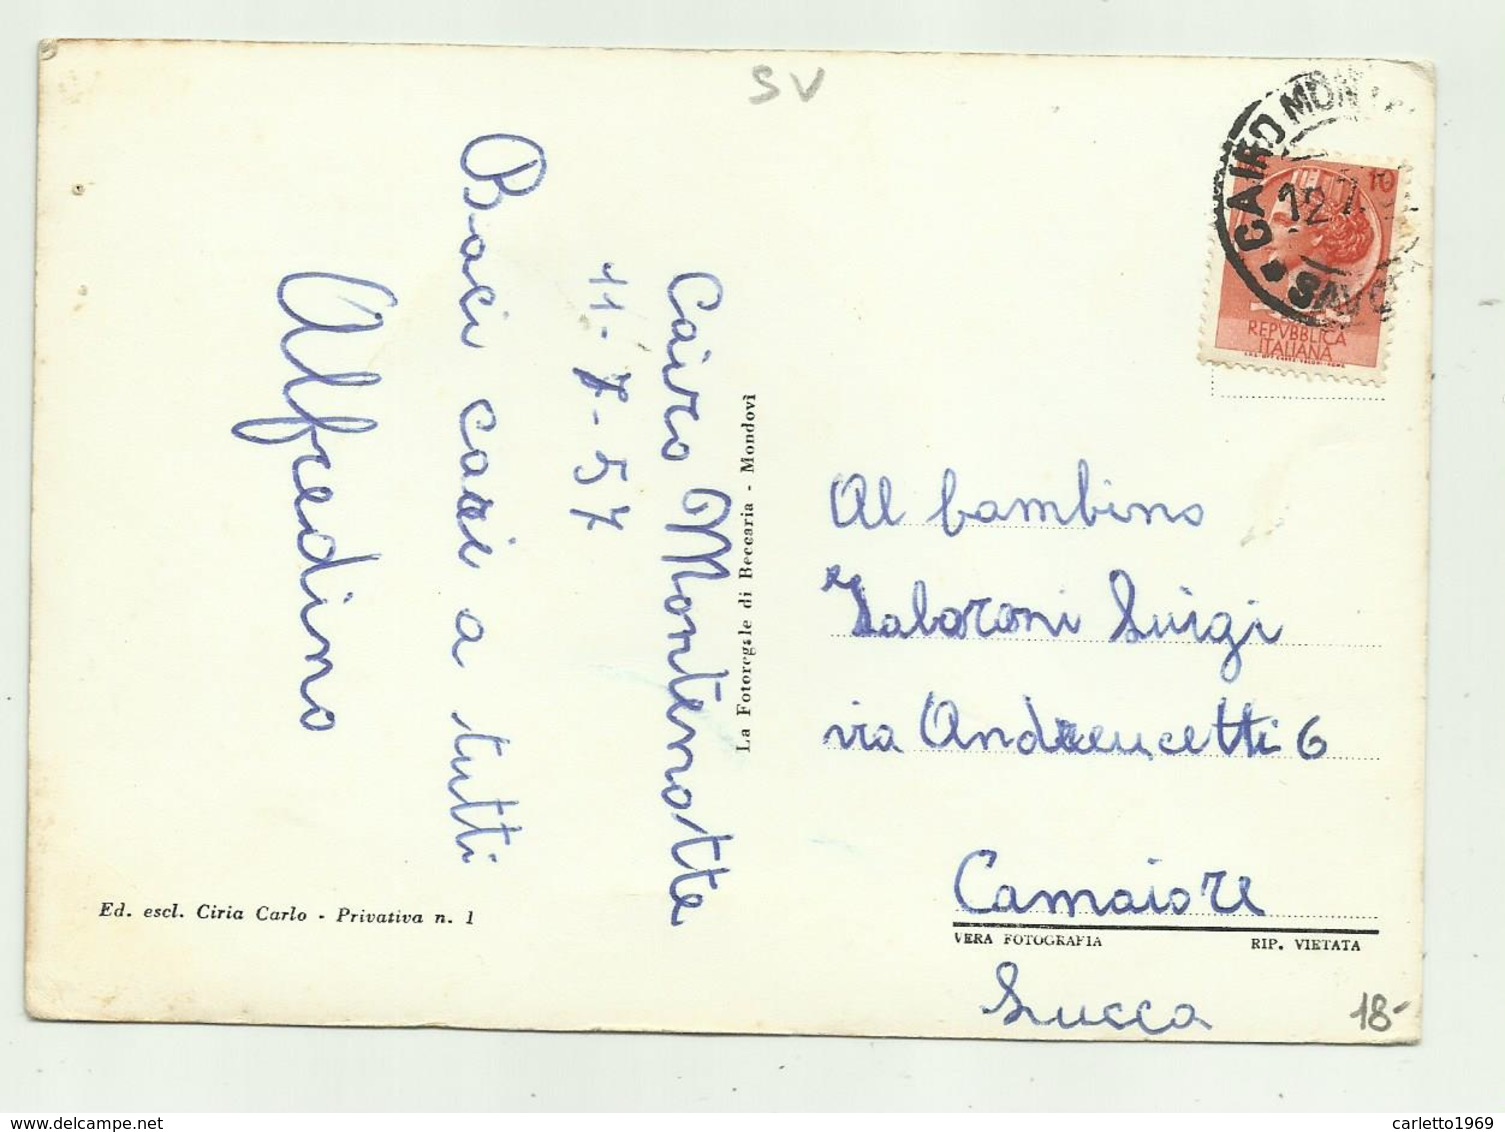 SV
Cairo Montenotte
11-7-57
Baci cari a tutti
Alfredino
La Fotoregale di Beccaria - Mondovì
Ed. escl. Ciria Carlo - Privativa n. 1
CAIRO MONT
12.7.
SAVO
10
REPVBBLICA
ITALIANA
Al bambino
Luigi
via Andreucetti 6
Camaiore
VERA FOTOGRAFIA
RIP. VIETATA
Lucca
18-
carletto1969
delcampe.net